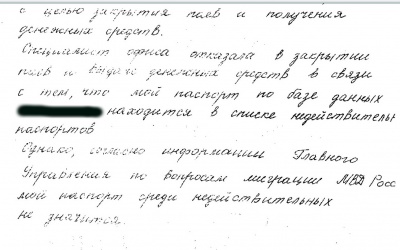 с целью закрытия паев и получения
денежных средств.
Специалист офиса отказала в закрытии
паев и выдаче денежных средств в связи
с тем, что мой паспорт по базе данных
находится в списке недействительн
паспортов
Однако, согласно информации Главного
Управления по вопросам миграции МВД Росс
мой паспорт среди недействительных
не значится.